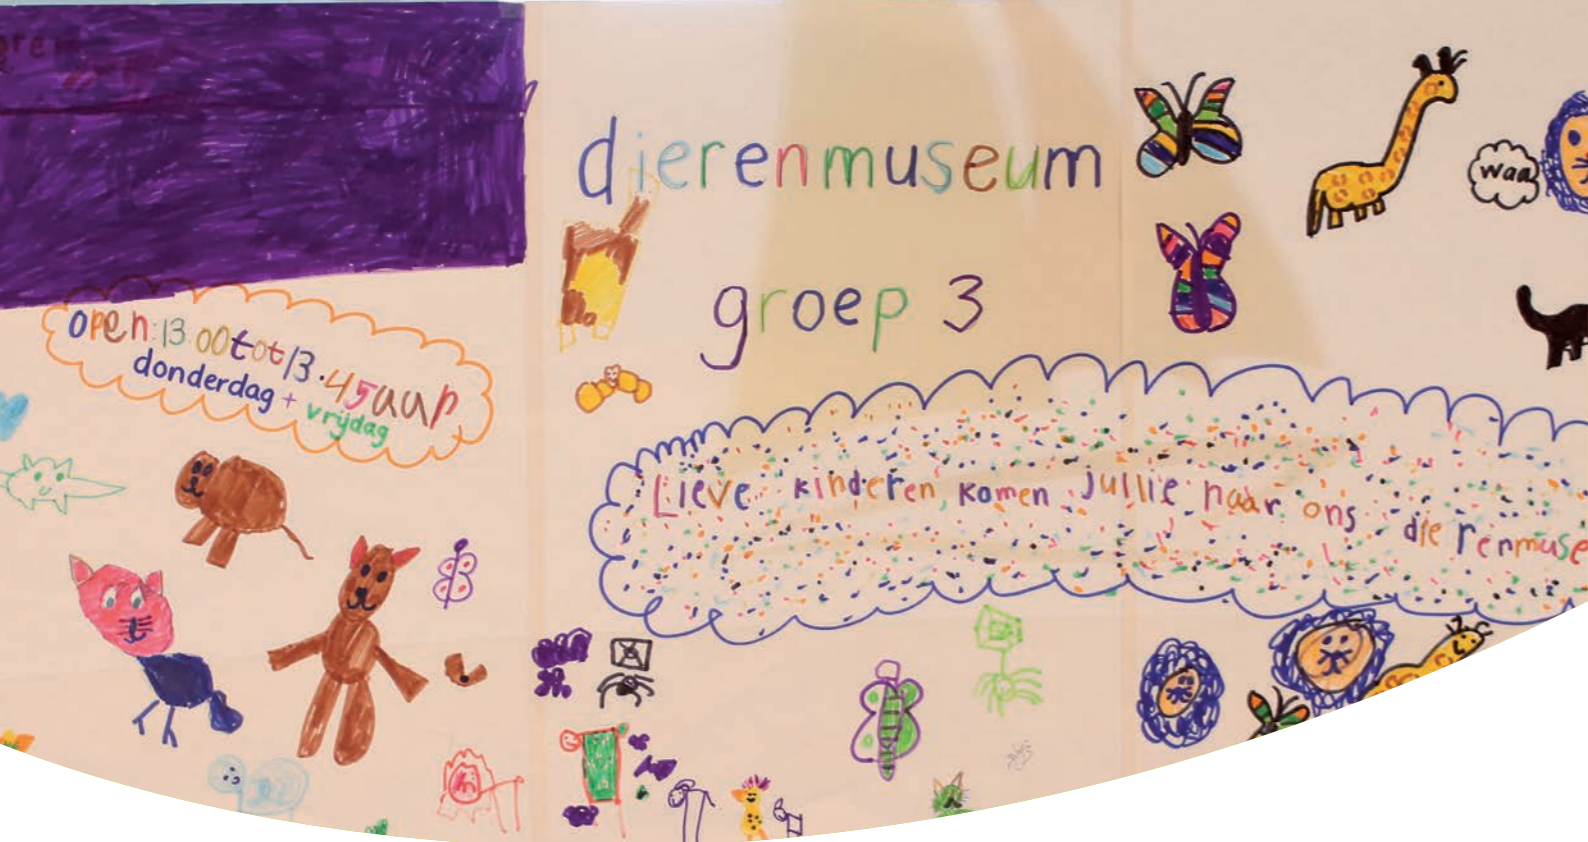 dierenmuseum
groep 3
open: 13.00 tot 13.45 uur
donderdag + vrijdag
Lieve kinderen, komen jullie naar ons dierenmuse
waa